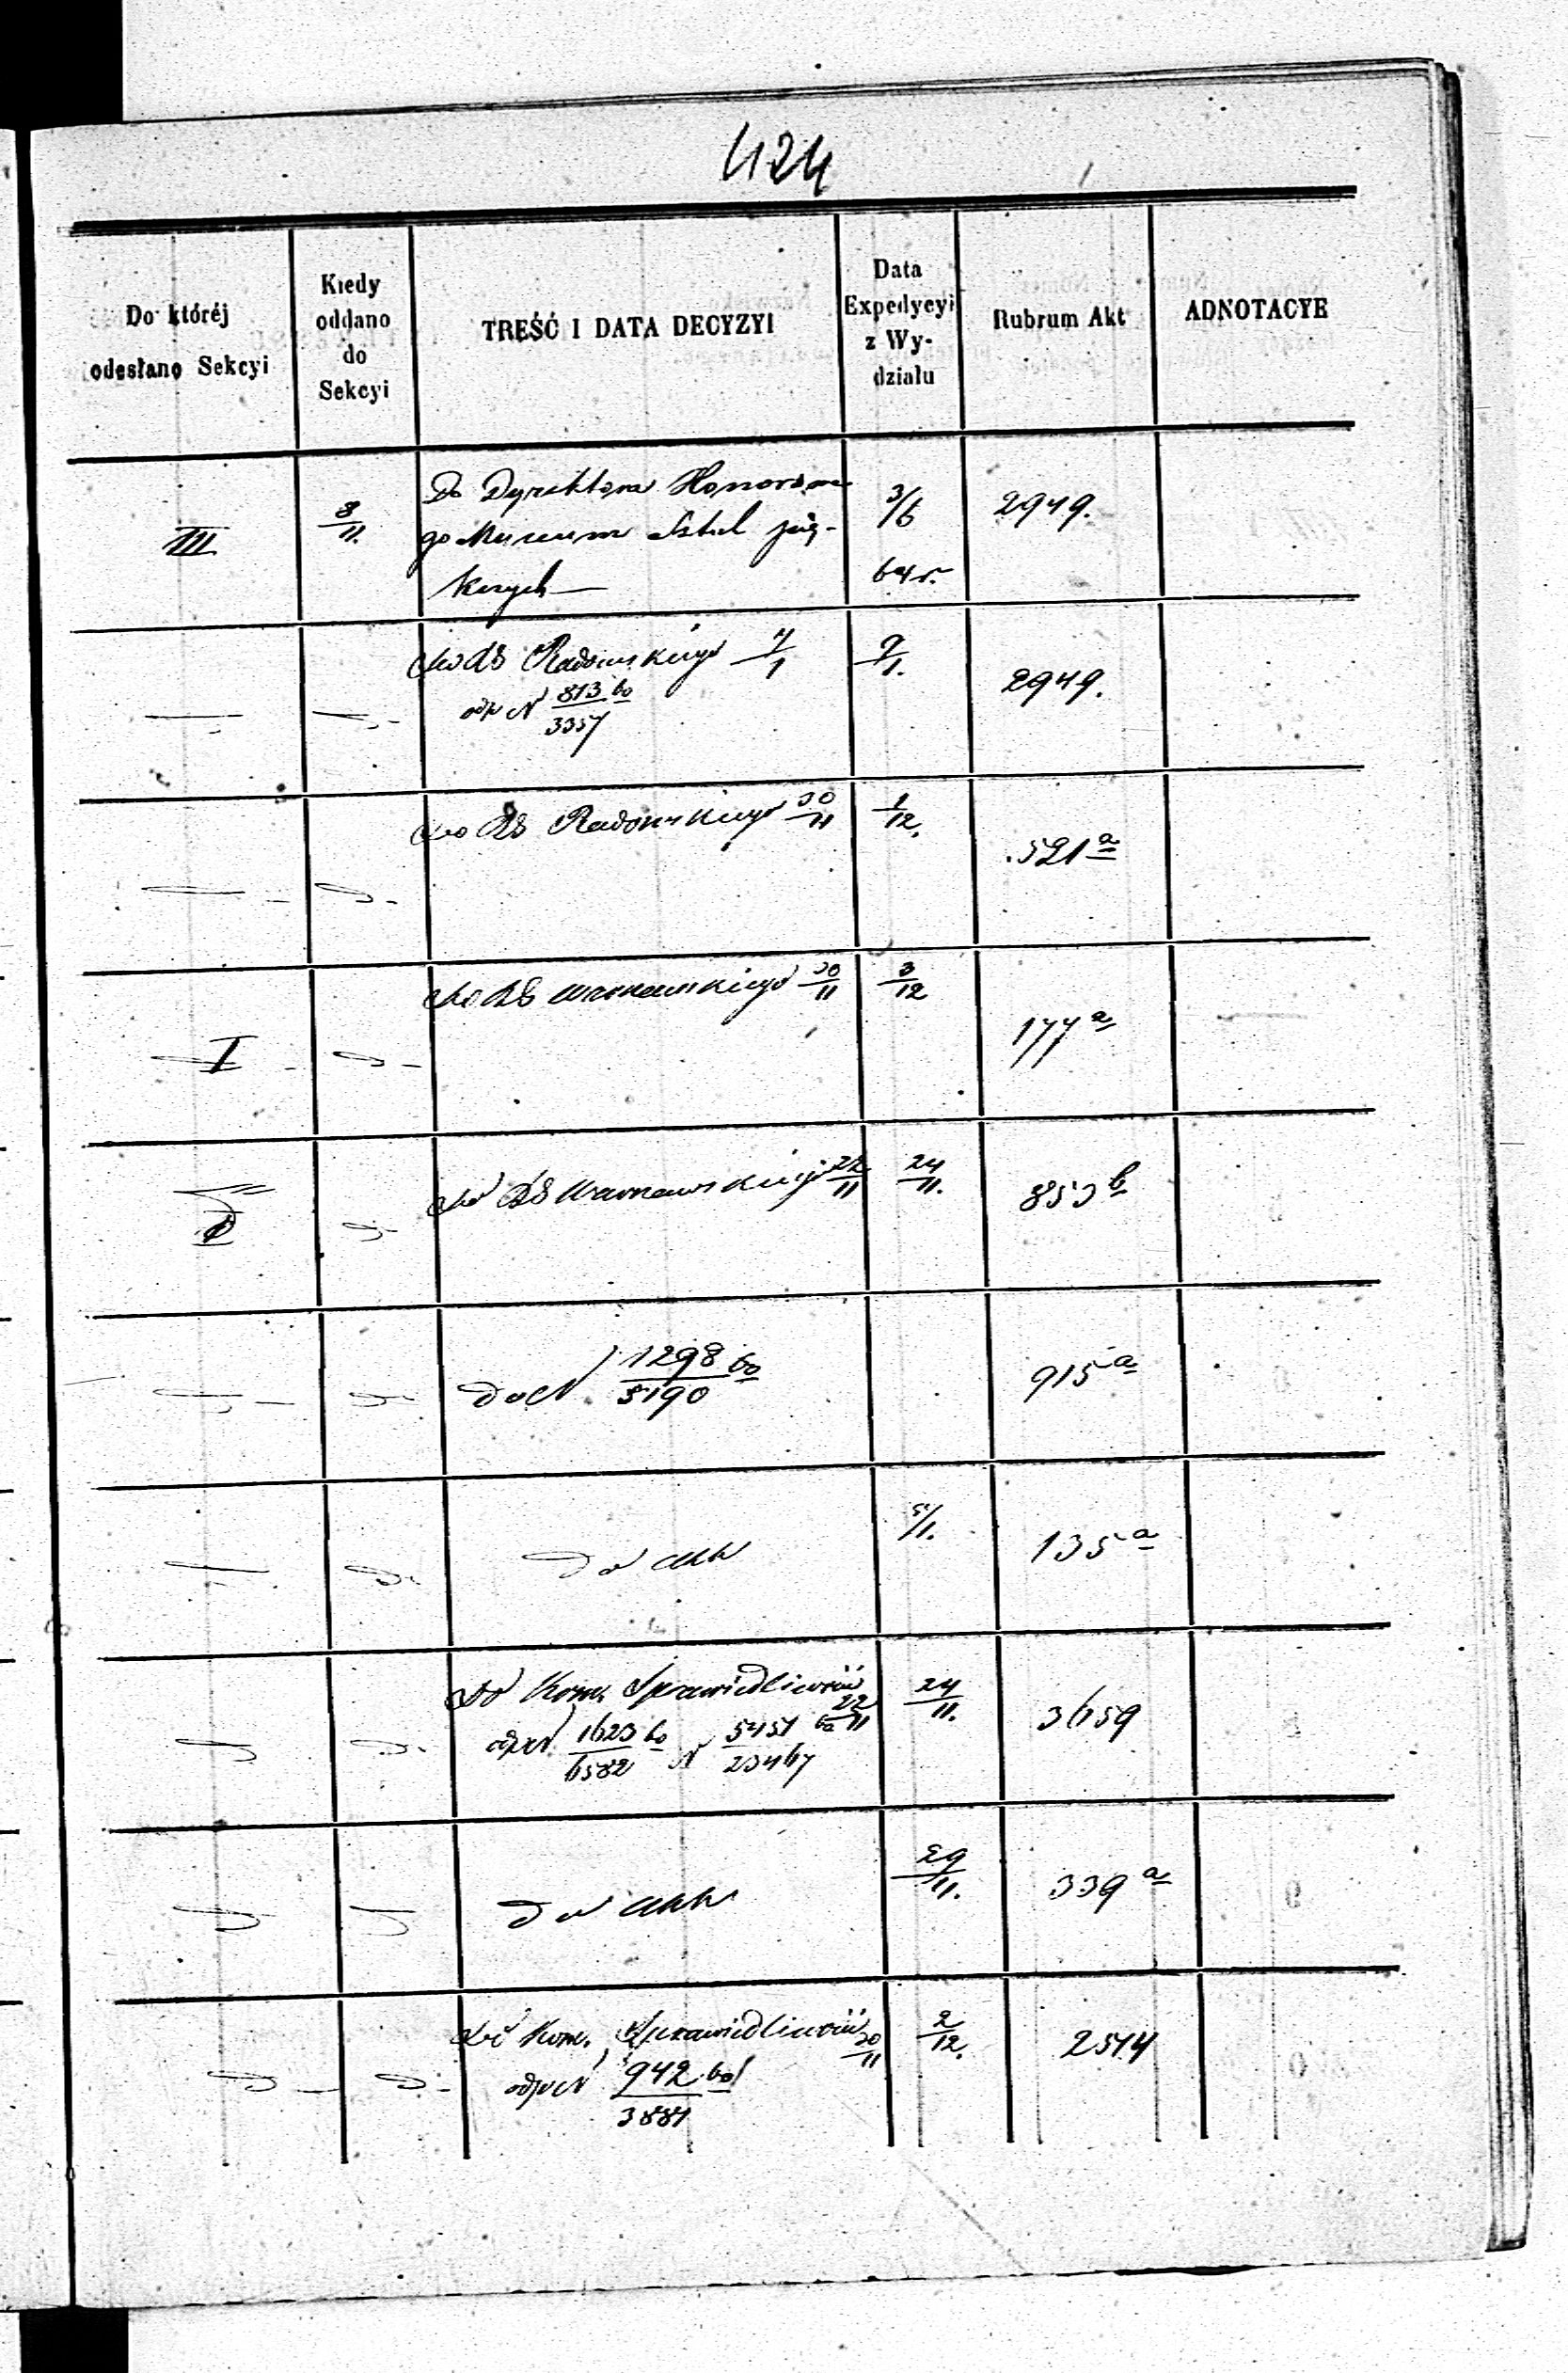 424
Do któréj odesłano Sekcyi
Kiedy oddano do Sekcyi
TREŚĆ I DATA DECYZYI
Data Expedycyi z Wydziału
Rubrum Akt
ADNOTACYE
III
8/11.
Do Dyrektora Honorowe
go Muzeum Sztuk pię-
knych
3/6
64 r.
2949.
Do RG Radomskiego
9/1.
odp N 813/3357
2949.
Do RG Radomskiego 30/11
1/12.
521 a
I
Do RG Warszawskiego 30/11
3/12
177 a
Do RG Warszawskiego 22/11
24/11.
853 b
do N 1298/5190
915 a
do akt
135 a
Do Kom. Sprawiedliwości 22/11
24/11.
odp N 1623/6582 N 5457/23467
3659
do akt
29/11.
339 a
Do Kom. Sprawiedliwości 30/11
2/12.
odp N 942/3887
2574